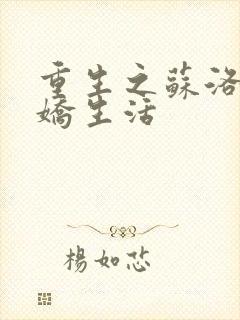 重生之蘇洛
嬌生活
楊如芯